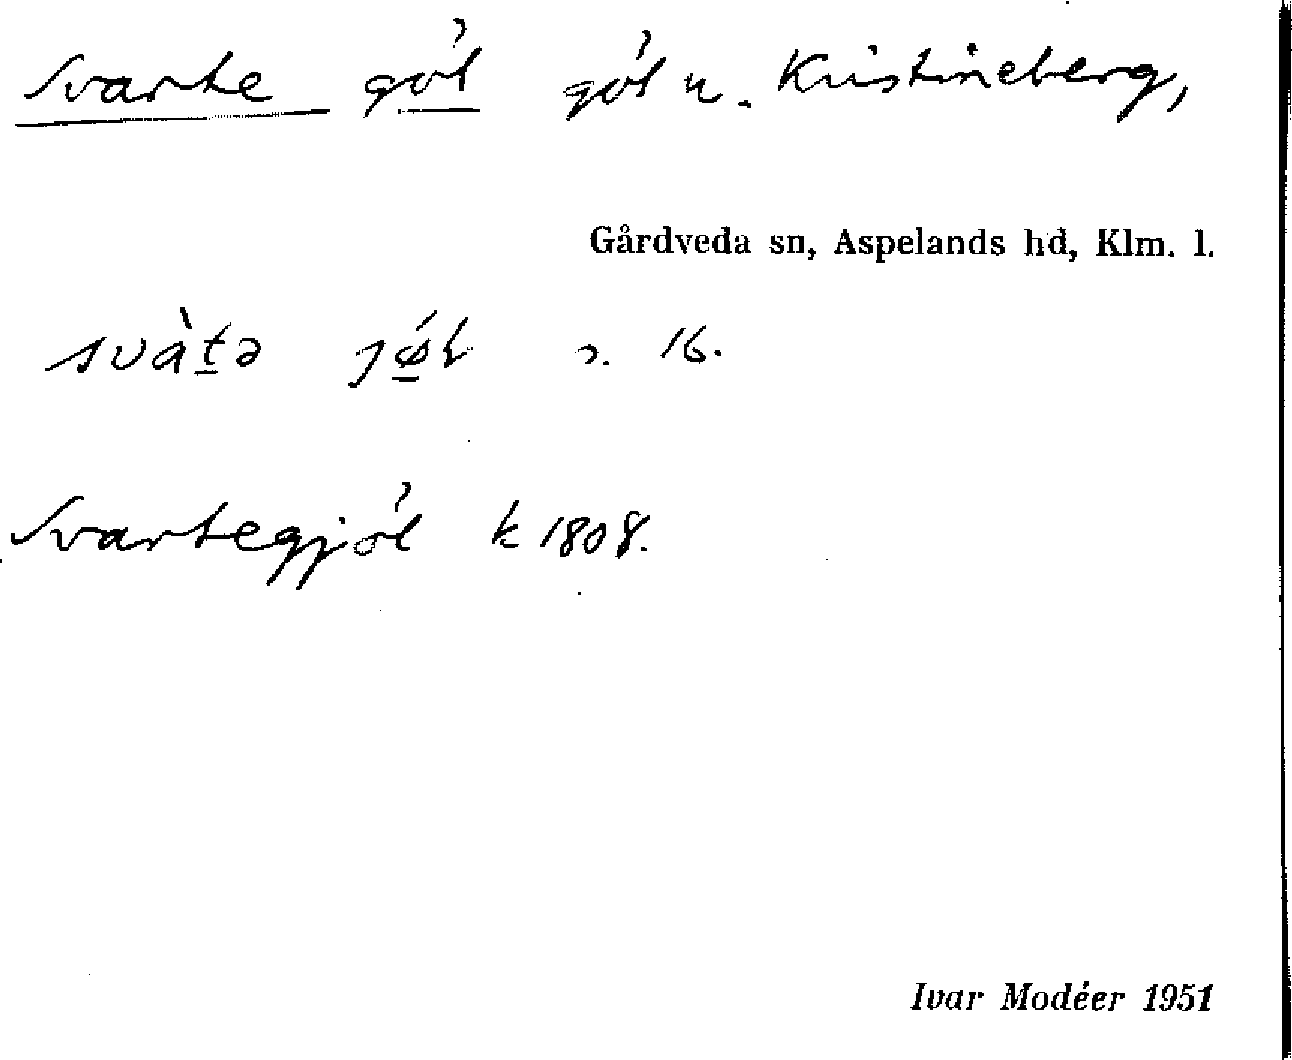 Svarte göl göl u. Kristineberg,
Gårdveda sn, Aspelands hd, Klm. l.
svàt̲ə
16.
Svartegjöl k 1808.
Ivar Modéer 1951